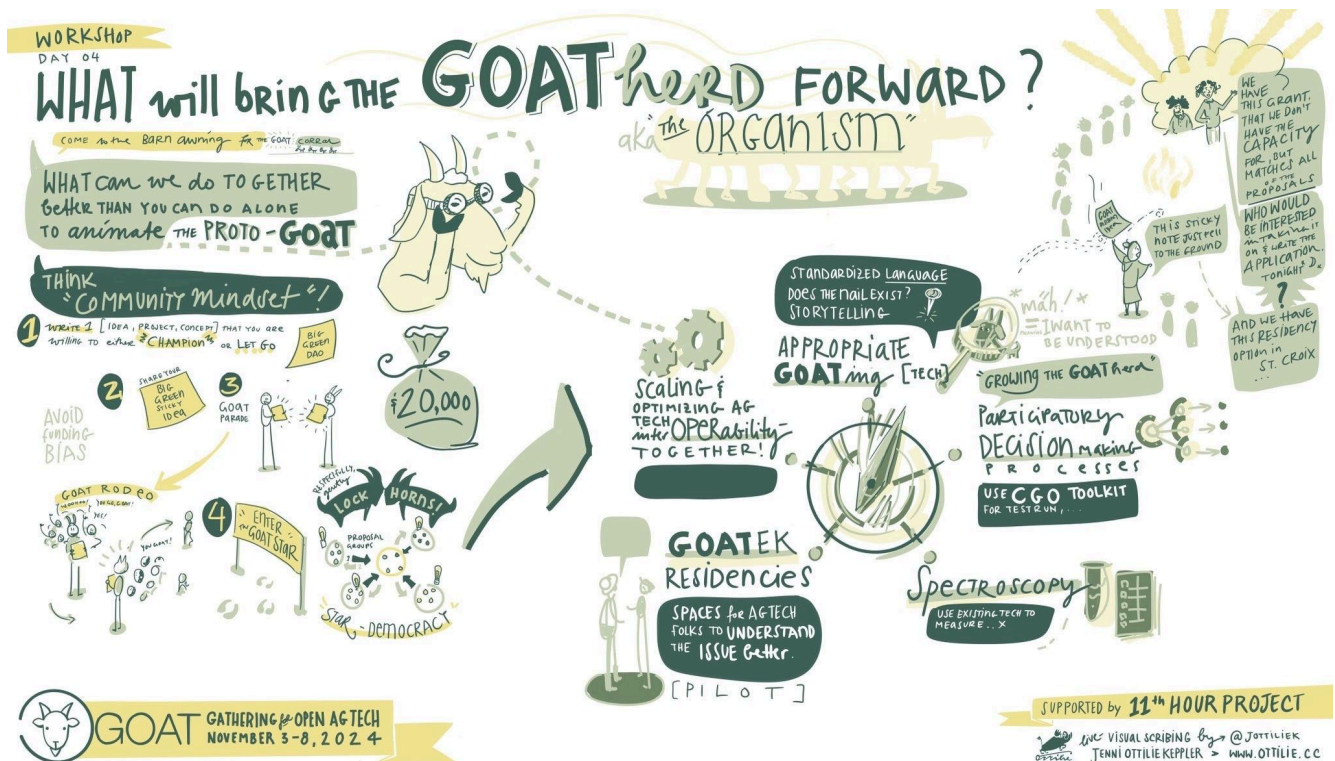 WORKSHOP
DAY 04
WHAT will brinG THE GOATherd FORWARD?
aka "the ORGANISM"
COME to the BARN awning for THE GOAT CORRAL
WHAT can we do TOGETHER
better THAN YOU CAN DO ALONE
TO animate THE PROTO-GOAT
THINK
"COMMUNITY Mindset"!
1 WRITE 1 [IDEA, PROJECT, CONCEPT] THAT YOU ARE
WILLING TO either "CHAMPION" OR LET GO
BIG
GREEN
DAO
2
SHARE YOUR
BIG
GREEN
STICKY
IDEA
3
GOAT
PARADE
AVOID
funding
BIAS
$20,000
GOAT RODEO
YES!
YOU GOAT!
4 "ENTER
THE GOAT STAR"
RESPECTFULLY,
gently
LOCK HORNS!
PROPOSAL
GROUPS
"STAR-DEMOCRACY"
SCALING &
OPTIMIZING AG
TECH
interOPERability-
TOGETHER!
STANDARDIZED LANGUAGE
DOES THE nail EXIST?
STORYTELLING
APPROPRIATE
GOATing [TECH]
*mäh!*
= I WANT TO
BE UNDERSTOOD
"GROWING THE GOATherd"
PARTICIPATORY
DECISION MAKING
PROCESSES
USE CGO TOOLKIT
FOR TESTRUN,...
GOATEK
RESIDENCIES
SPACES for AGTECH
FOLKS TO UNDERSTAND
THE ISSUE better.
[PILOT]
SPECTROSCOPY
USE EXISTING TECH TO
MEASURE..X
THIS STICKY
NOTE JUST fell
TO THE GROUND
WE
HAVE
THIS GRANT.
THAT WE DON'T
HAVE THE
CAPACITY
FOR, BUT
MATCHES ALL
OF THE
PROPOSALS
WHO WOULD
BE INTERESTED
in TAKING it
ON & WRITE THE
APPLICATION.
TONIGHT
?
AND WE HAVE
THIS RESIDENCY
OPTION in
ST. CROIX
...
GOAT GATHERING for OPEN AG TECH
NOVEMBER 3-8, 2024
SUPPORTED by 11th HOUR PROJECT
live VISUAL SCRIBING by @JOTTILIEK
ottilie JENNI OTTILIE KEPPLER > WWW.OTTILIE.CC